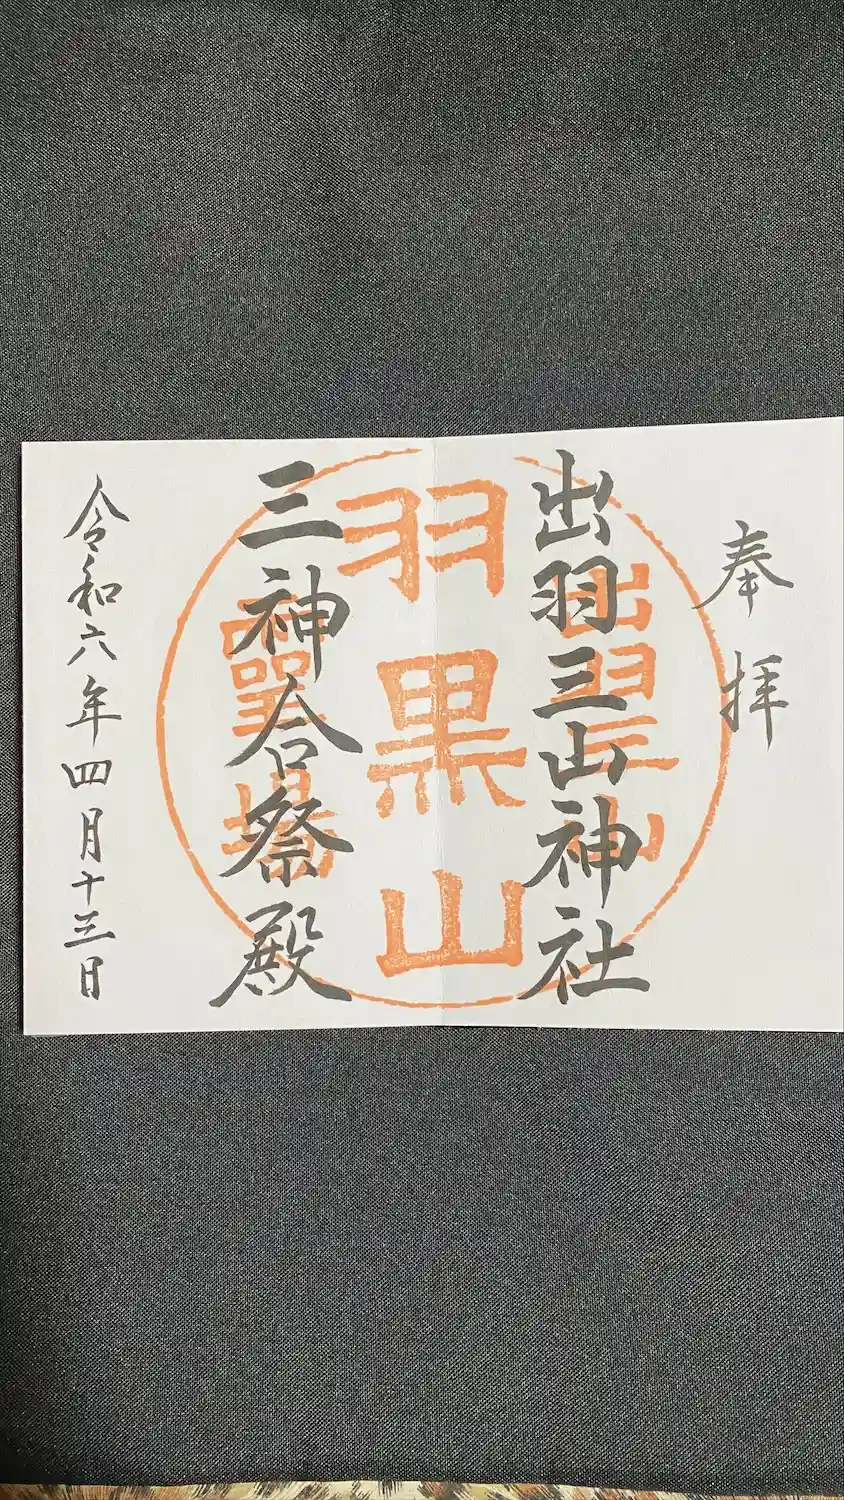 奉拝
出羽三山神社
羽黒山
三神合祭殿
令和六年四月十三日